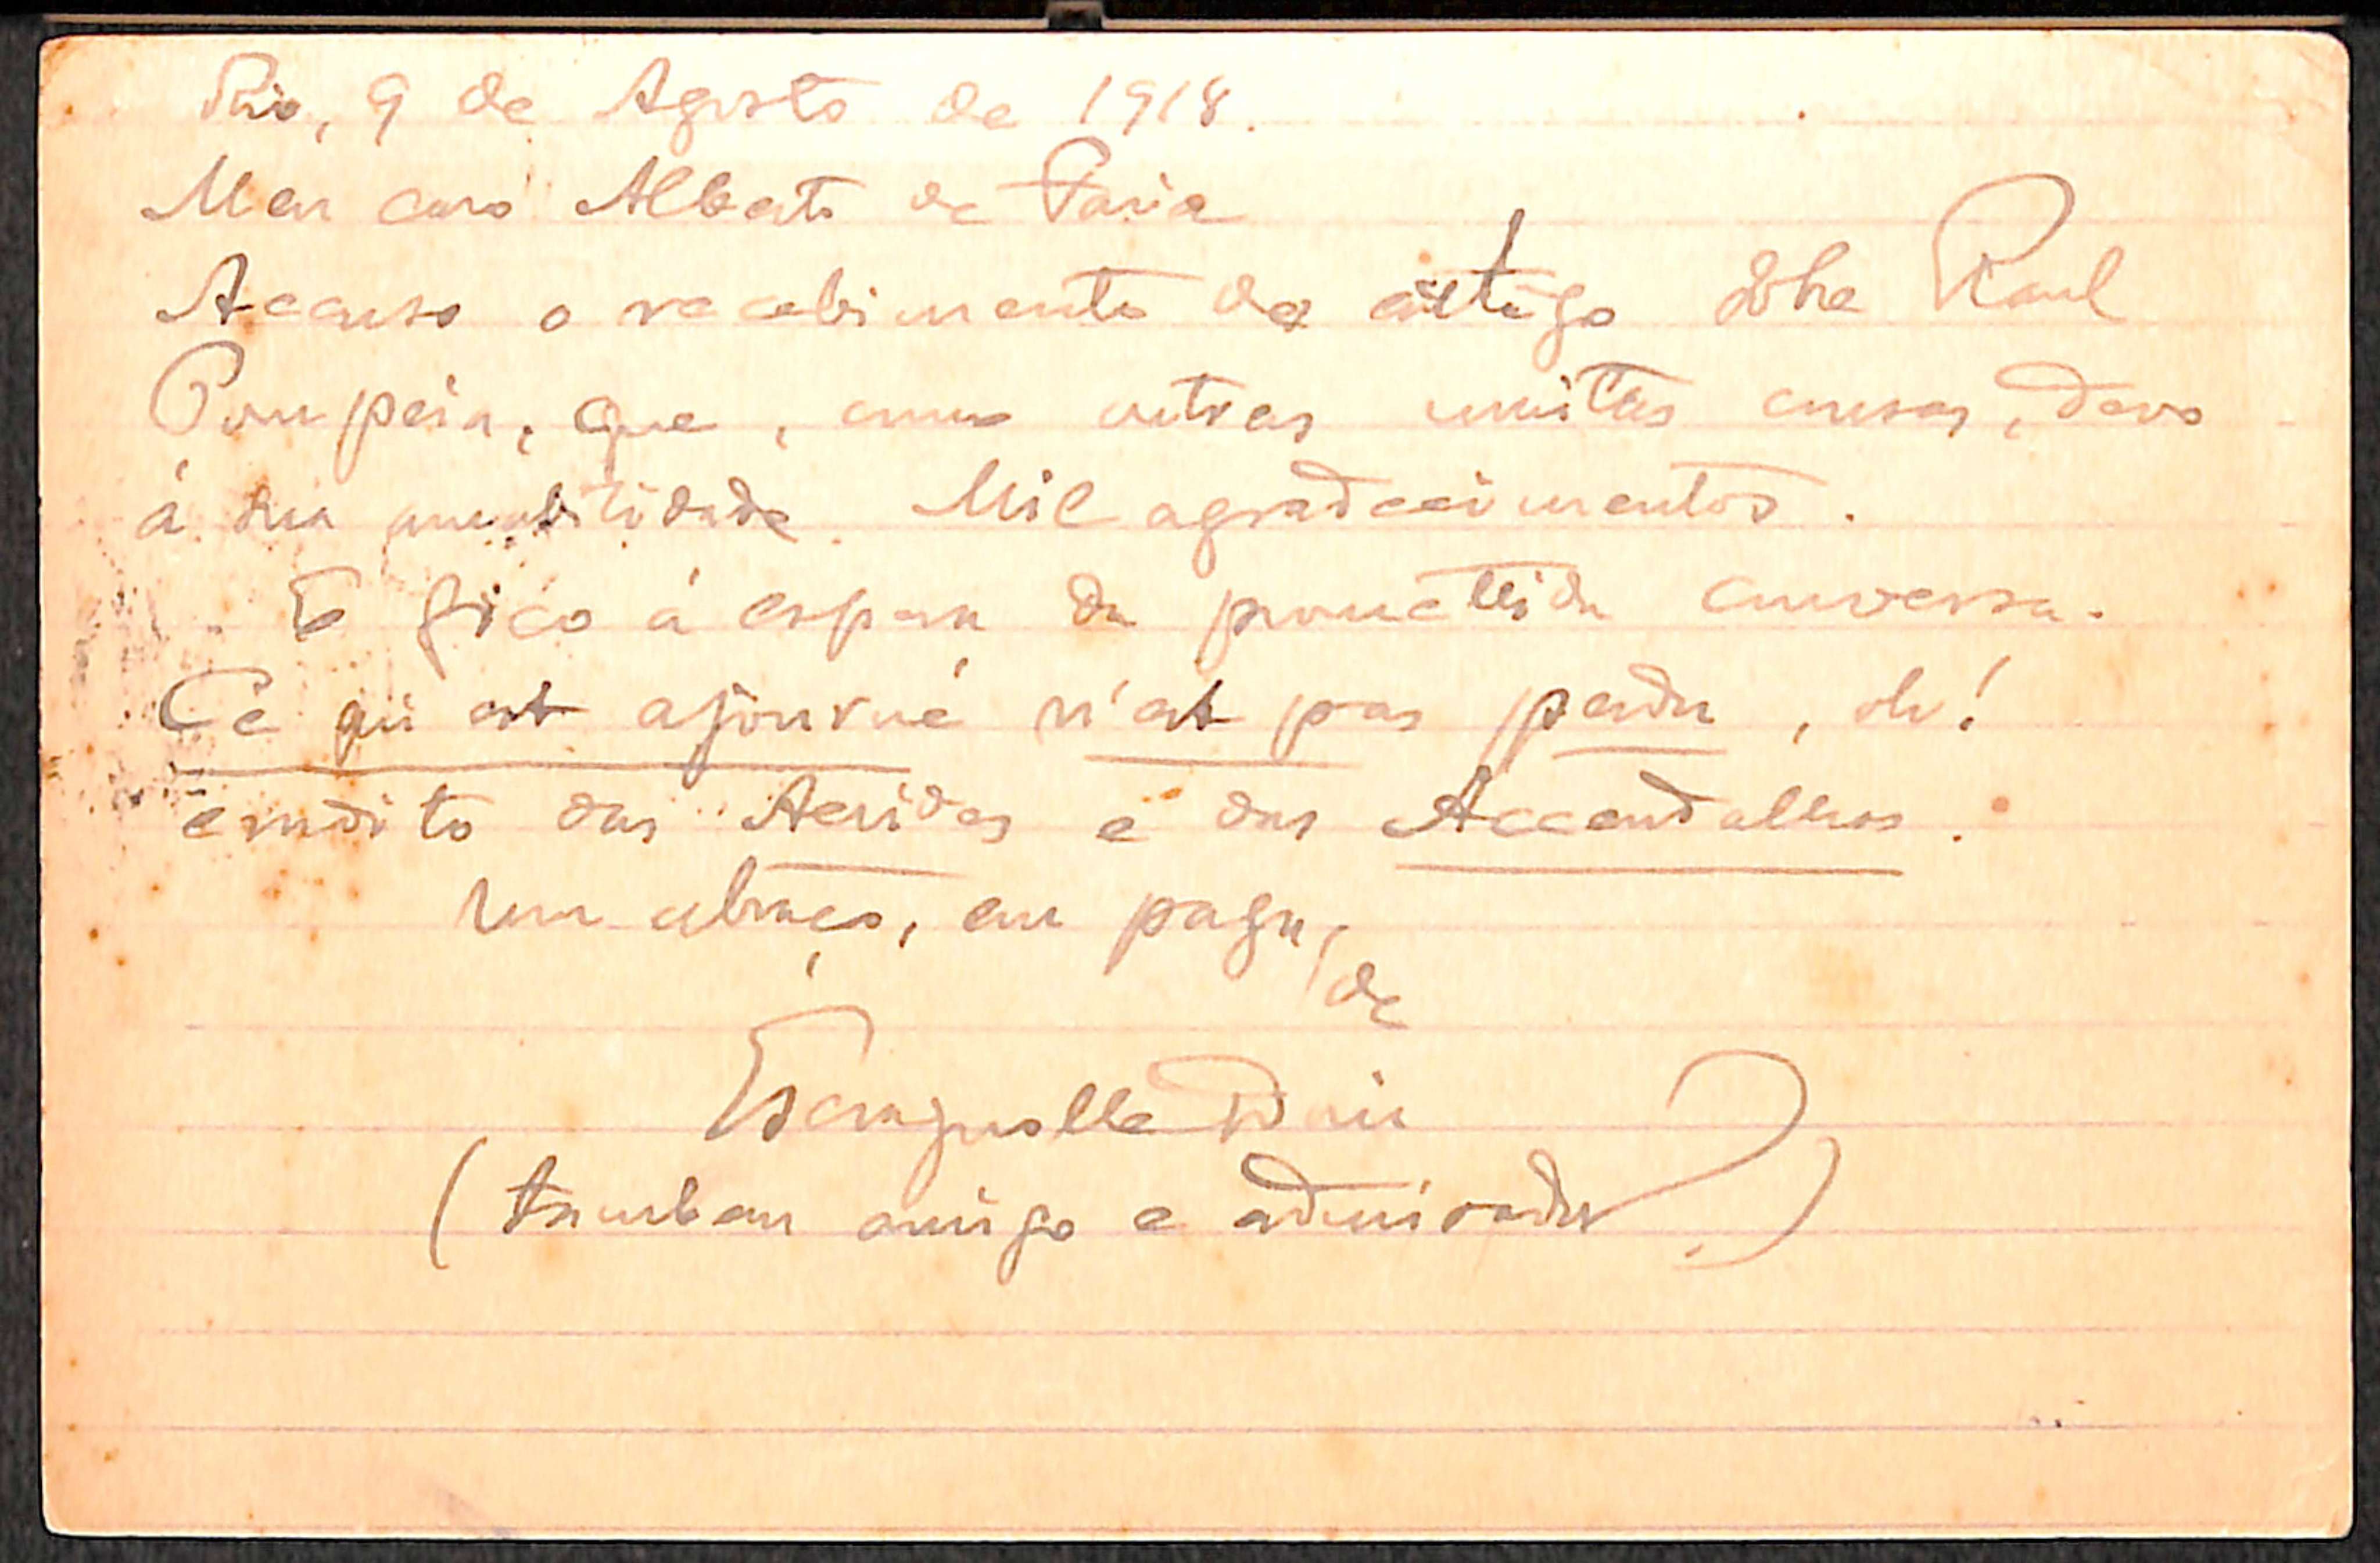 Rio, 9 de Agosto de 1918.
Meu caro Alberto de Faria
Accuso o recebimento do artigo sobre Raul
Pompeia, que, como outras muitas cousas, devo
á sua amabilidade. Mil agradecimentos.
E fico á espera da promettida conversa.
Ce qui est ajourné n'est pas perdu, oh!
erudito das Aerides e das Accendalhas.
Um abraço, em paga, de
Escragnolle Doria
(tambem amigo e admirador)